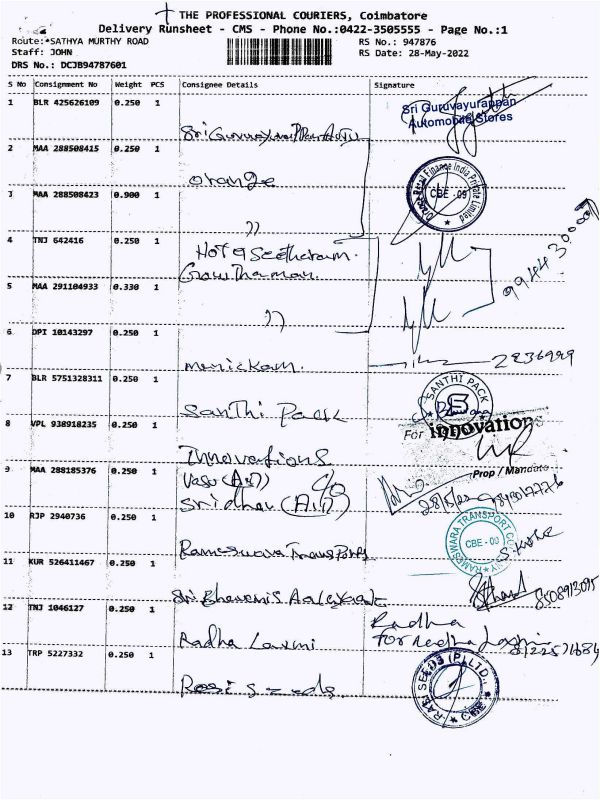 THE PROFESSIONAL COURIERS, Coimbatore
Delivery Runsheet - CMS - Phone No.:0422-3505555 - Page No.:1
Route:*SATHYA MURTHY ROAD
Staff: JOHN
DRS No.: DCJB94787601
RS No.: 947876
RS Date: 28-May-2022
S No Consignment No Weight PCS Consignee Details Signature
1 BLR 425626109 0.250 1
Sri Guruvayurappan
Automobile Stores
2 MAA 288508415 0.250 1
Orange
Retail Finance India Private Limited
CBE - 09
3 MAA 288508423 0.900 1
"
4 TNJ 642416 0.250 1
Hotel Seetharam.
Gowthaman.
5 MAA 291104933 0.330 1
"
6 DPI 10143297 0.250 1
manickam.
2836999
7 BLR 5751328311 0.250 1
Santhi Pack
SANTHI PACK
8 VPL 938918235 0.250 1
For innovations
Prop / Mandate
Innovations
9 MAA 288185376 0.250 1
Vasu (AD) C/o
Sridhar (AD)
10 RJP 2940736 0.250 1
RAMESWARA TRANSPORT COMPANY
CBE - 09
Rameswara Transports
11 KUR 526411467 0.250 1
8508913095
12 TNJ 1046127 0.250 1
Radha
For Radha Laxmi
Radha Laxmi
13 TRP 5227332 0.250 1
Rasi Seeds
RASI SEEDS (P) LTD.,
CBE